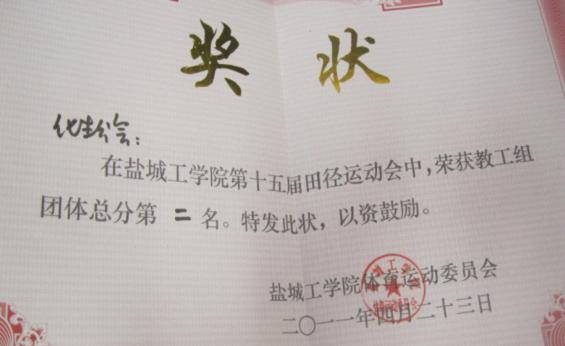 奖 状
化生分会：
在盐城工学院第十五届田径运动会中，荣获教工组
团体总分第 二 名。特发此状，以资鼓励。
盐城工学院体育运动委员会
二〇一一年四月二十三日